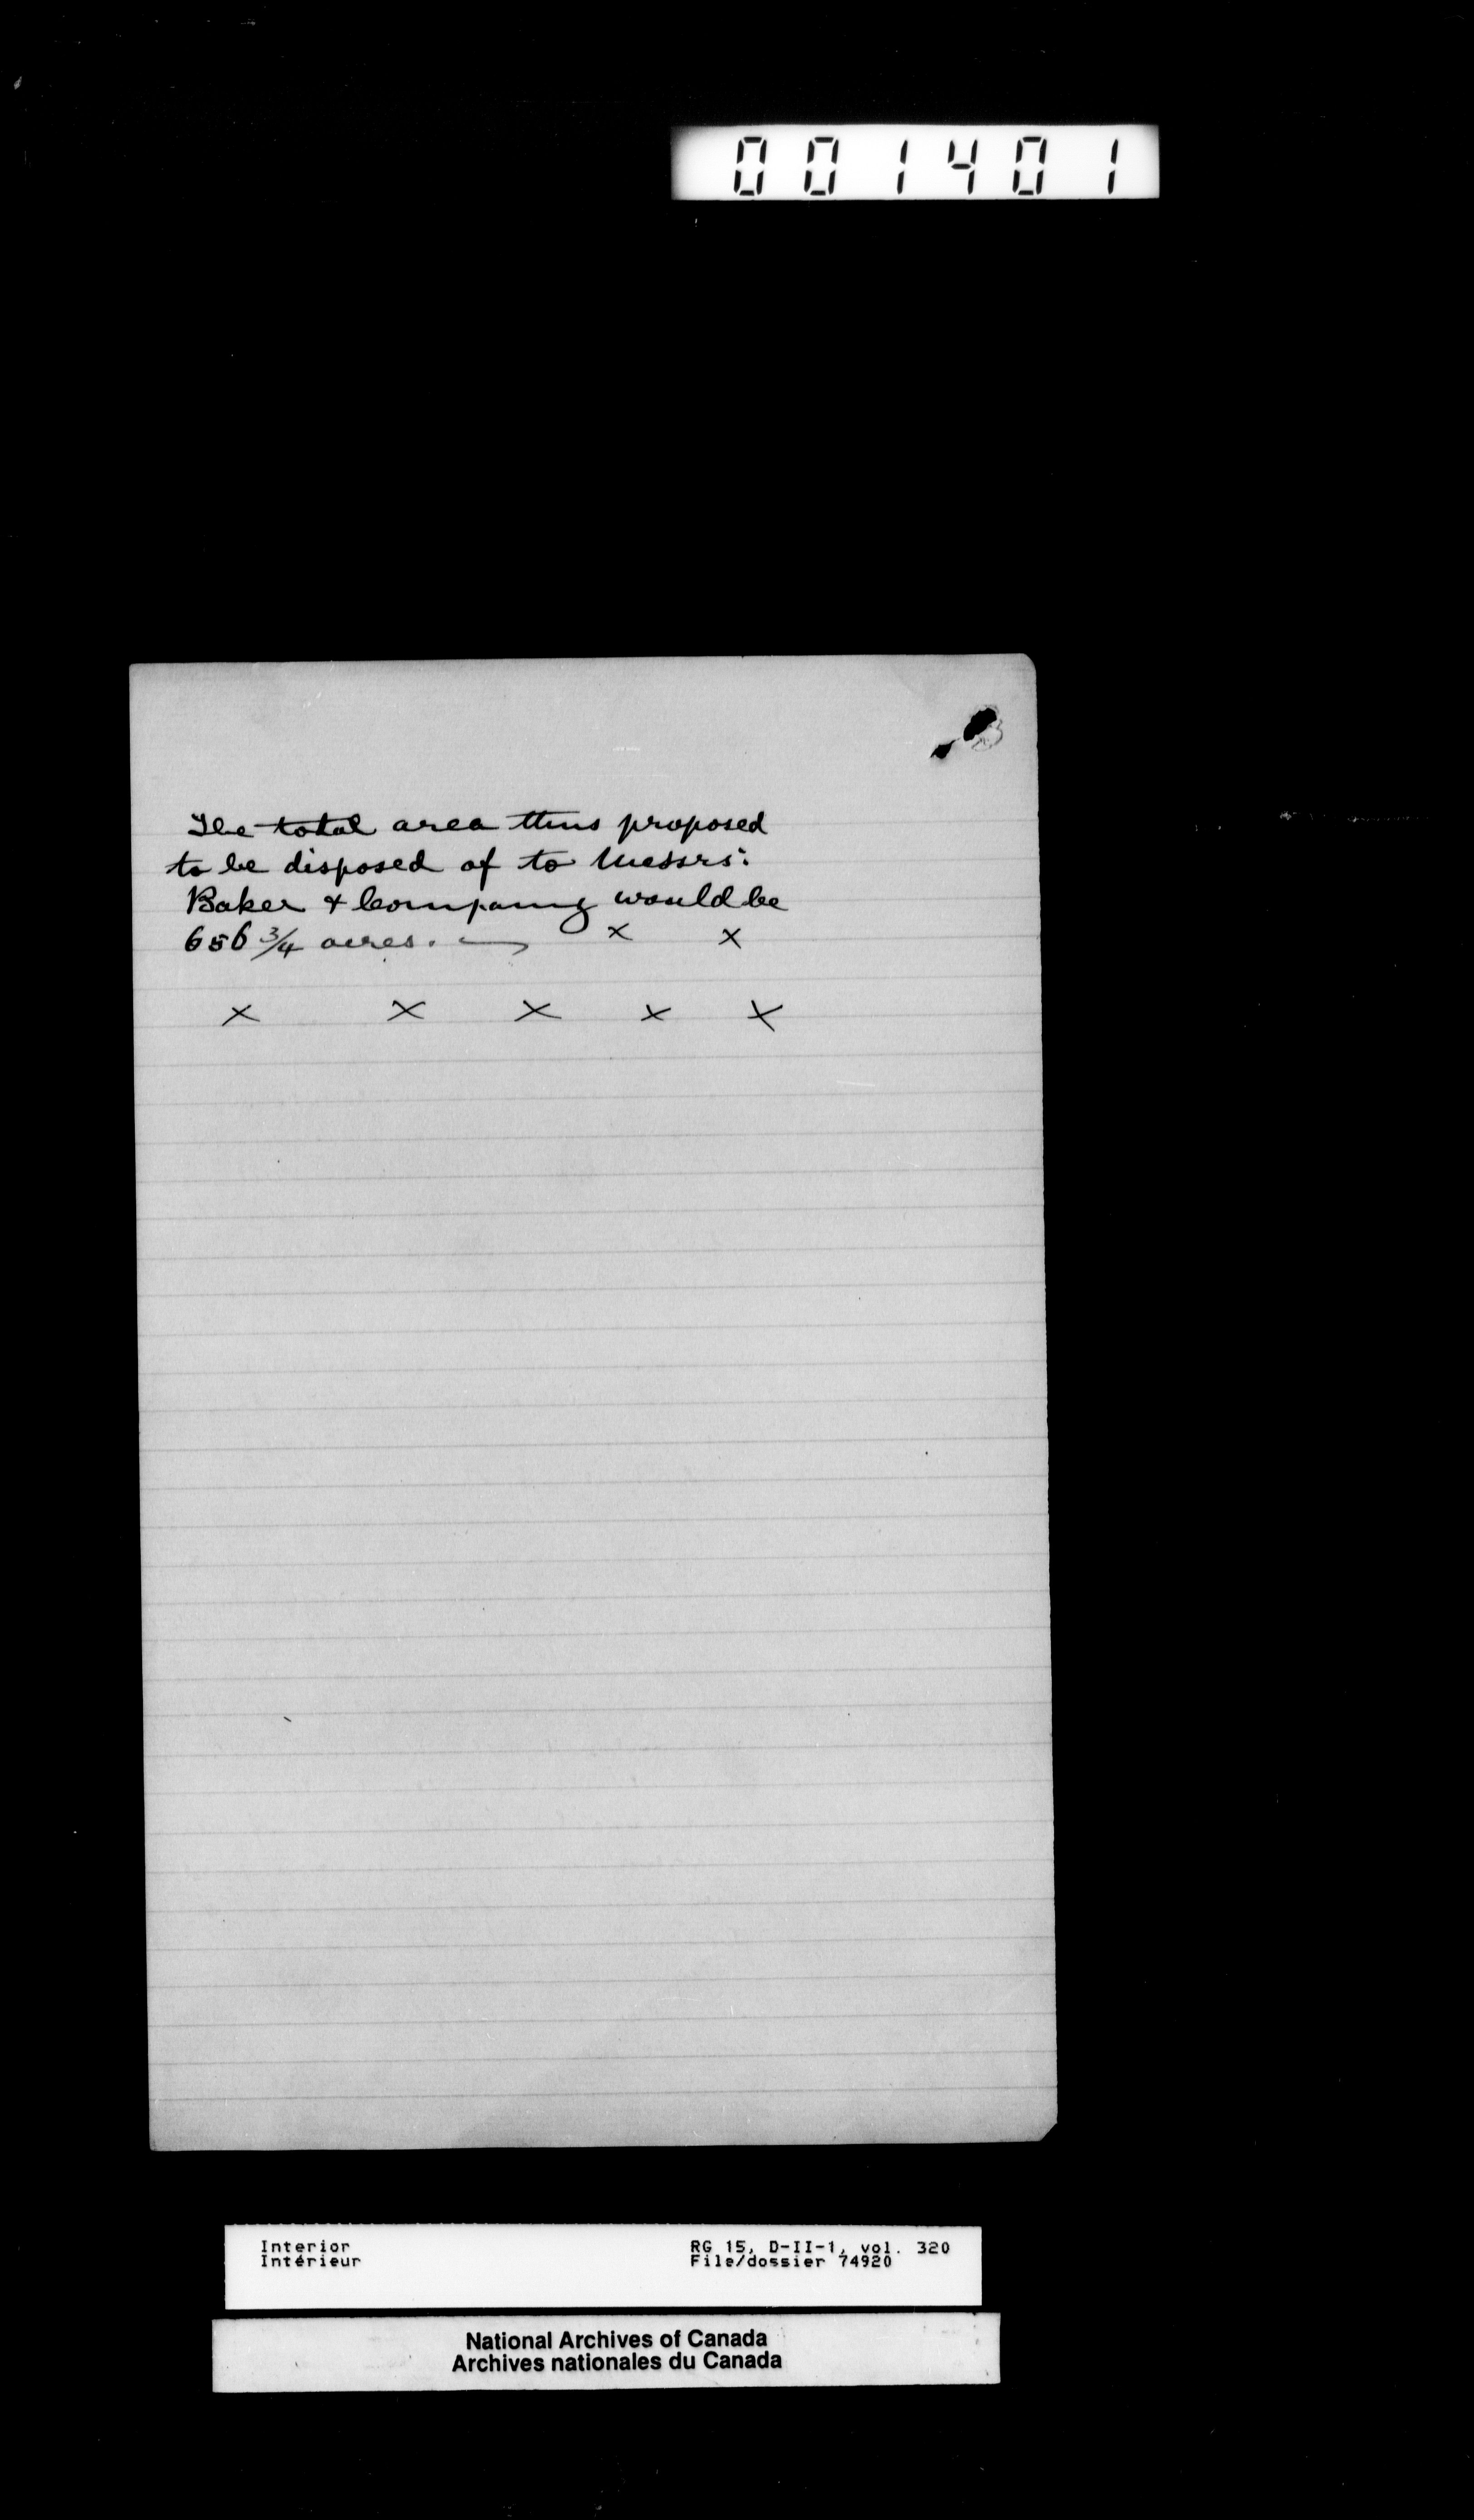 001401
3
The total area thus proposed
to be disposed of to Messrs:
Baker & Company would be
656 3/4 acres. — x x
x x x x x
Interior RG 15, D-II-1, vol. 320
Intérieur File/dossier 74920
National Archives of Canada
Archives nationales du Canada